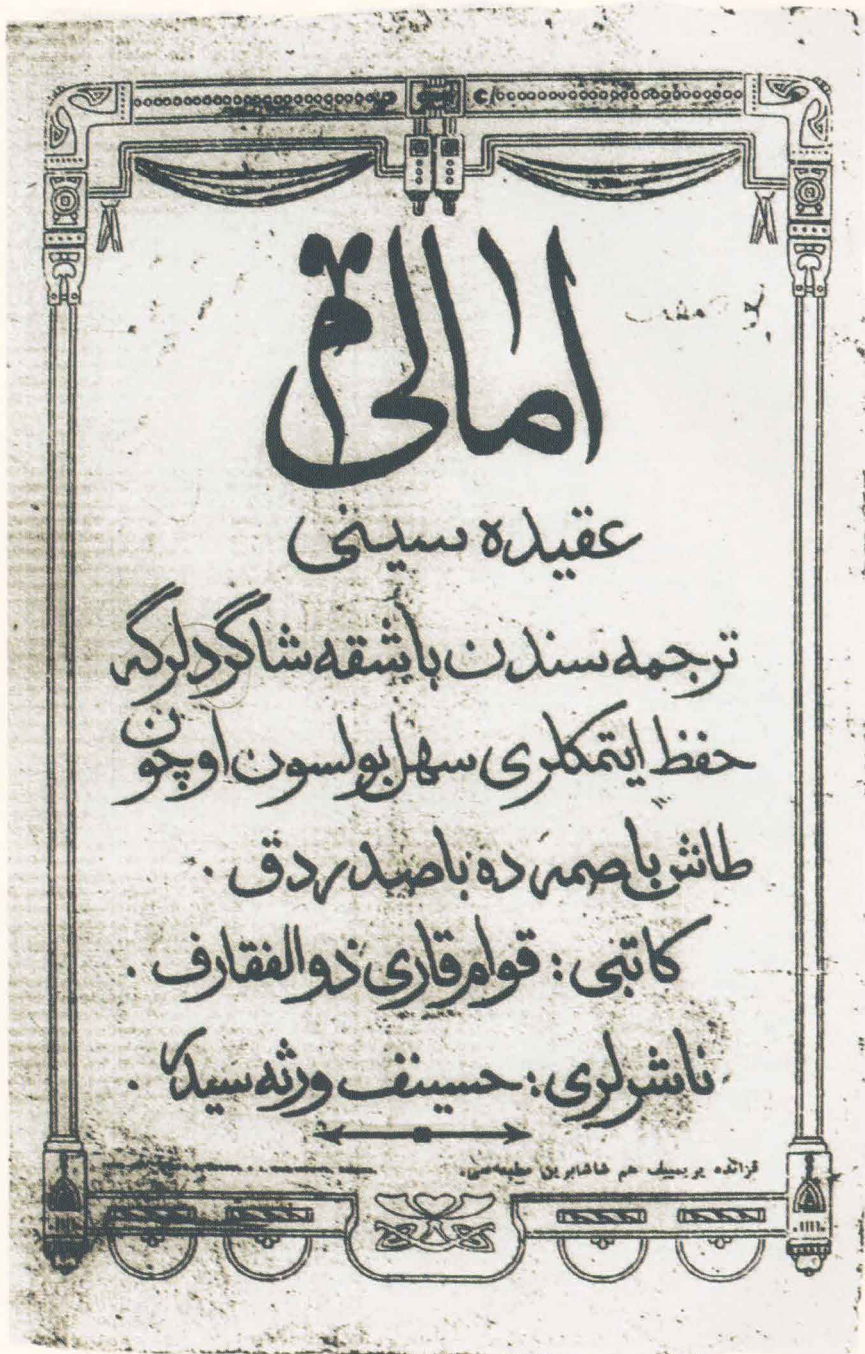 امالی
عقیده سینی
ترجمه سندن باشقه شاگردلرگه
حفظ ایتمکلری سهل بولسون اوچون
طاش باصمه ده باصدردق .
کاتبی : قوام قاری ذوالفقارف .
ناشرلری : حسینف ورثه سیدر .
قزانده یریمییف هم شاشابرین مطبعه‌سی.